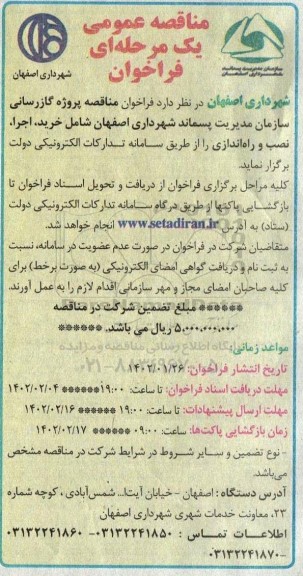 مناقصه عمومی
یک مرحله‌ای
فراخوان
سازمان مدیریت پسماند
شهرداری اصفهان
شهرداری اصفهان
شهرداری اصفهان در نظر دارد فراخوان مناقصه پروژه گازرسانی
سازمان مدیریت پسماند شهرداری اصفهان شامل خرید، اجرا،
نصب و راه‌اندازی را از طریق سامانه تدارکات الکترونیکی دولت
برگزار نماید.
کلیه مراحل برگزاری فراخوان از دریافت و تحویل اسناد فراخوان تا
بازگشایی پاکتها از طریق درگاه سامانه تدارکات الکترونیکی دولت
(ستاد) به آدرس www.setadiran.ir انجام خواهد شد.
متقاضیان شرکت در فراخوان در صورت عدم عضویت در سامانه، نسبت
به ثبت نام و دریافت گواهی امضای الکترونیکی (به صورت برخط) برای
کلیه صاحبان امضای مجاز و مهر سازمانی اقدام لازم را به عمل آورند.
****** مبلغ تضمین شرکت در مناقصه
۵,۰۰۰,۰۰۰,۰۰۰ ریال می باشد. ******
مواعد زمانی:
تاریخ انتشار فراخوان: ۱۴۰۲/۰۱/۲۶
مهلت دریافت اسناد فراخوان: تا ساعت: ۱۹:۰۰ ****** ۱۴۰۲/۰۲/۰۴
مهلت ارسال پیشنهادات: تا ساعت: ۱۹:۰۰ ****** ۱۴۰۲/۰۲/۱۶
زمان بازگشایی پاکت‌ها: ساعت: ۰۹:۰۰ ****** ۱۴۰۲/۰۲/۱۷
- نوع تضمین و سایر شروط در شرایط شرکت در مناقصه مشخص
می‌باشد.
آدرس دستگاه: اصفهان - خیابان آیت‌ا... شمس‌آبادی، کوچه شماره
۲۳، معاونت خدمات شهری شهرداری اصفهان
اطلاعات تماس: ۰۳۱۳۲۲۴۱۸۵۰- ۰۳۱۳۲۲۴۱۸۶۰
-۰۳۱۳۲۲۴۱۸۷۰